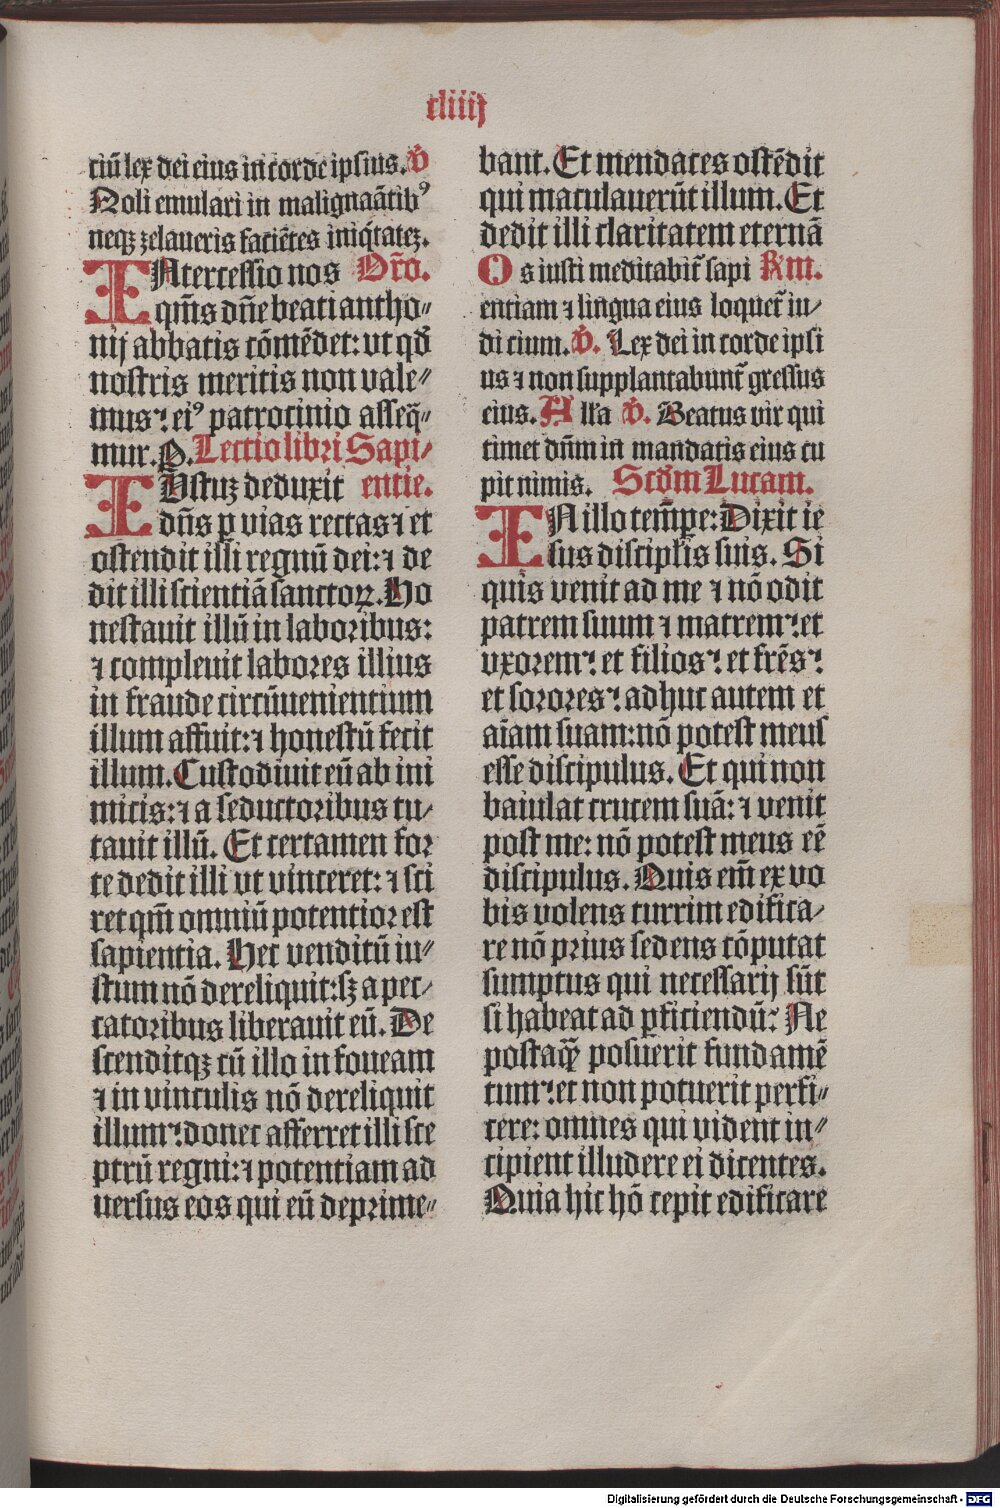 cliiij
ciū lex dei eius in corde ipsius. v̄
Noli emulari in malignaātibꝰ
neqꝫ zelaueris faciētes iniq̄tateꝫ.
INtercessio nos Or̄o.
qm̄s dn̄e beati antho⸗
nij abbatis cōmēdet: vt qđ
nostris meritis non vale⸗
mus: eiꝰ patrocinio asseq̄⸗
mur. P. Lectio libri Sapi/
IUstuꝫ deduxit entie.
dn̄s ꝑ vias rectas ⁊ et
ostendit illi regnū dei: ⁊ de
dit illi scientiā sanctoꝝ. Ho
nestauit illū in laboribus:
⁊ compleuit labores illius
in fraude circūuenientium
illum affuit: ⁊ honestū fecit
illum. Custodiuit eū ab ini
micis: ⁊ a seductoribus tu/
tauit illū. Et certamen for
te dedit illi vt vinceret: ⁊ sci
ret qm̄ omniū potentior est
sapientia. Hec venditū iu⸗
stum nō dereliquit: sꝫ a pec/
catoribus liberauit eū. De
scenditqꝫ cū illo in foueam
⁊ in vinculis nō dereliquit
illum: donec afferret illi sce
ptrū regni: ⁊ potentiam ad
uersus eos qui eū deprime⸗
bant. Et mendaces ostēdit
qui maculauerūt illum. Et
dedit illi claritatem eternā
Os iusti meditabit̄ sapi Rm.
entiam ⁊ lingua eius loquet̄ iu/
dicium. v̄. Lex dei in corde ipsi
us ⁊ non supplantabunt̄ gressus
eius. All'a v̄. Beatus vir qui
timet dn̄m in mandatis eius cu
pit nimis. Scđm Lucam.
IN illo temp̄e: Dixit ie
sus discipl̄is suis. Si
quis venit ad me ⁊ nō odit
patrem suum ⁊ matrem: et
vxorem: et filios: et fr̄es:
et sorores: adhuc autem et
aīam suam: nō potest meus
esse discipulus. Et qui non
baiulat crucem suā: ⁊ venit
post me: nō potest meus eē
discipulus. Quis em̄ ex vo
bis volens turrim edifica/
re nō prius sedens cōputat
sumptus qui necessarij sūt
si habeat ad ꝑficiendū: Ne
postaq̄ꝫ posuerit fundamē
tum: et non potuerit perfi⸗
cere: omnes qui vident in⸗
cipient illudere ei dicentes.
Quia hic hō cepit edificare
Digitalisierung gefördert durch die Deutsche Forschungsgemeinschaft - DFG